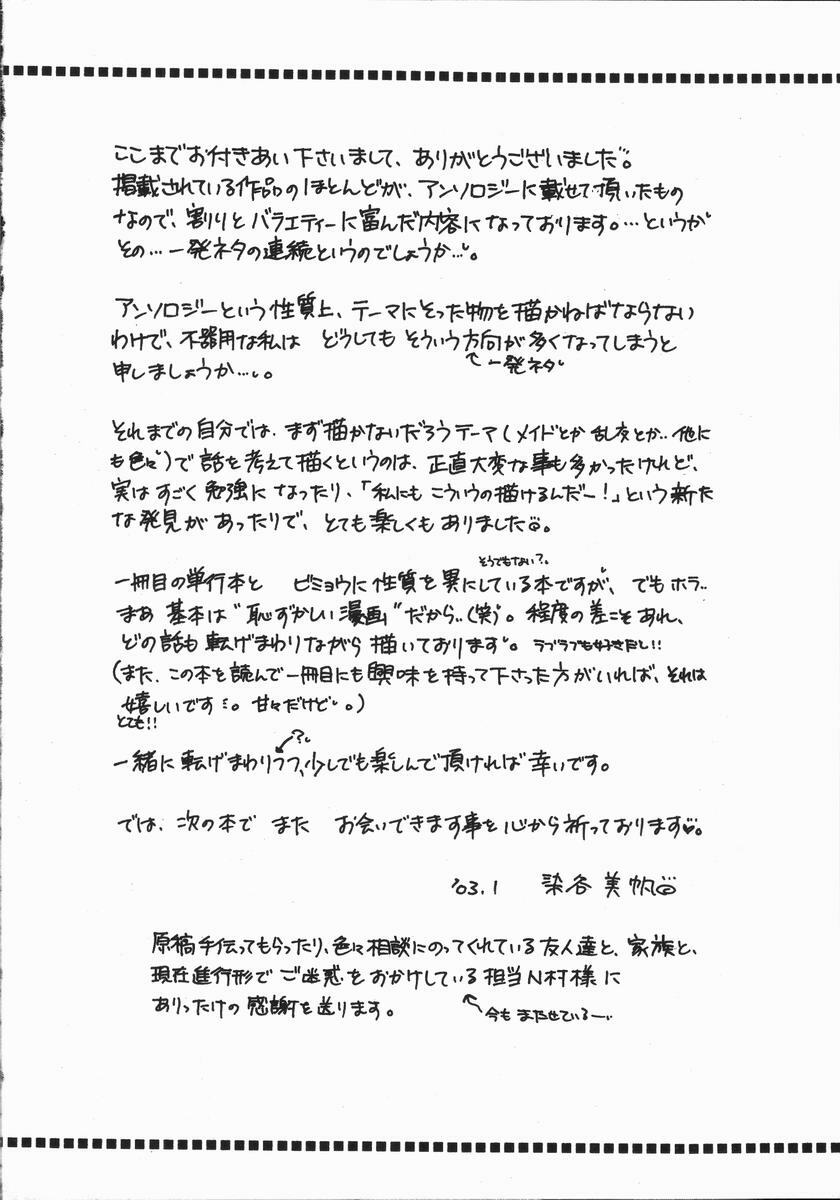 ここまでお付きあい下さいまして、ありがとうございました。
掲載されている作品のほとんどが、アンソロジーに載せて頂いたもの
なので、割りとバラエティーに富んだ内容になっております。…というか
その…一発ネタの連続というのでしょうか…。
アンソロジーという性質上、テーマにそった物を描かねばならない
わけで、不器用な私は どうしても そういう方向が多くなってしまうと
←一発ネタ
申しましょうか…。
それまでの自分では、まず描かないだろうテーマ(メイドとか乱交とか‥他に
も色々)で話を考えて描くというのは、正直大変な事も多かったけれど、
実はすごく勉強になったり、「私にも こういうの描けるんだー!」という新た
な発見があったりで、とても楽しくもありました。
そうでもない?
一冊目の単行本と ビミョウに性質を異にしている本ですが、でもホラ‥
まあ 基本は"恥ずかしい漫画"だから‥(笑)。程度の差こそあれ、
どの話も転げまわりながら描いております。ラブラブも好きだし!!
(また、この本を読んで一冊目にも興味を持って下さった方がいれば、それは
嬉しいです…。甘々だけど。)
とても!!
?
一緒に転げまわりつつ、少しでも楽しんで頂ければ幸いです。
では、次の本で また お会いできます事を心から祈っております♡。
'03.1 染谷美帆
原稿手伝ってもらったり、色々相談にのってくれている友人達と、家族と、
現在進行形で ご迷惑をおかけしている担当N村様に
ありったけの感謝を送ります。
←今も またせている―…